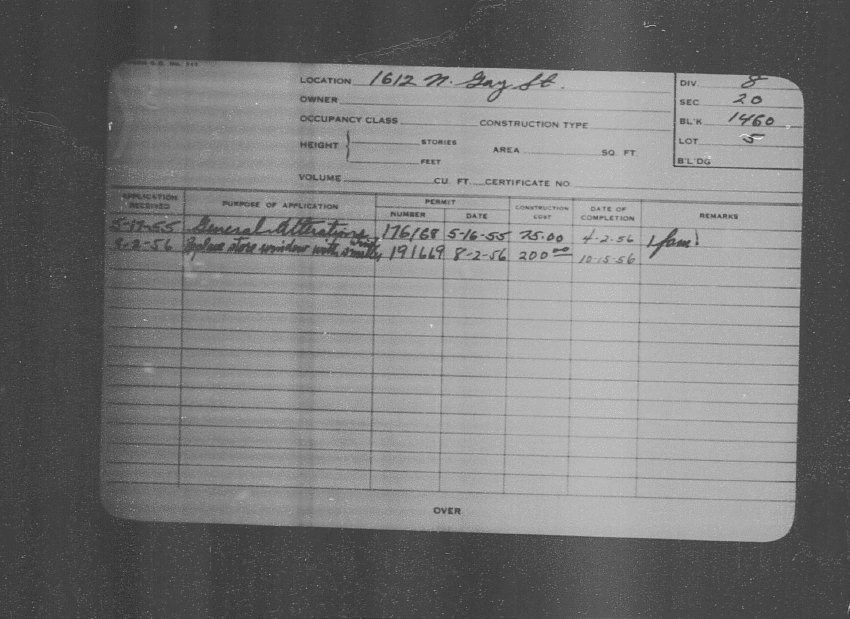 LOCATION 1612 N. Gay St. DIV 8
OWNER SEC 20
OCCUPANCY CLASS CONSTRUCTION TYPE BL'K 1460
HEIGHT STORIES AREA SQ. FT. LOT 5
FEET B'L'DG
VOLUME CU. FT. CERTIFICATE NO.
APPLICATION RECEIVED PURPOSE OF APPLICATION PERMIT NUMBER DATE CONSTRUCTION COST DATE OF COMPLETION REMARKS
General Alterations 176168 5-16-55 75.00 4-2-56 1 fam
8-2-56 Replace store window with smaller 191669 8-2-56 200.00 10-15-56
OVER